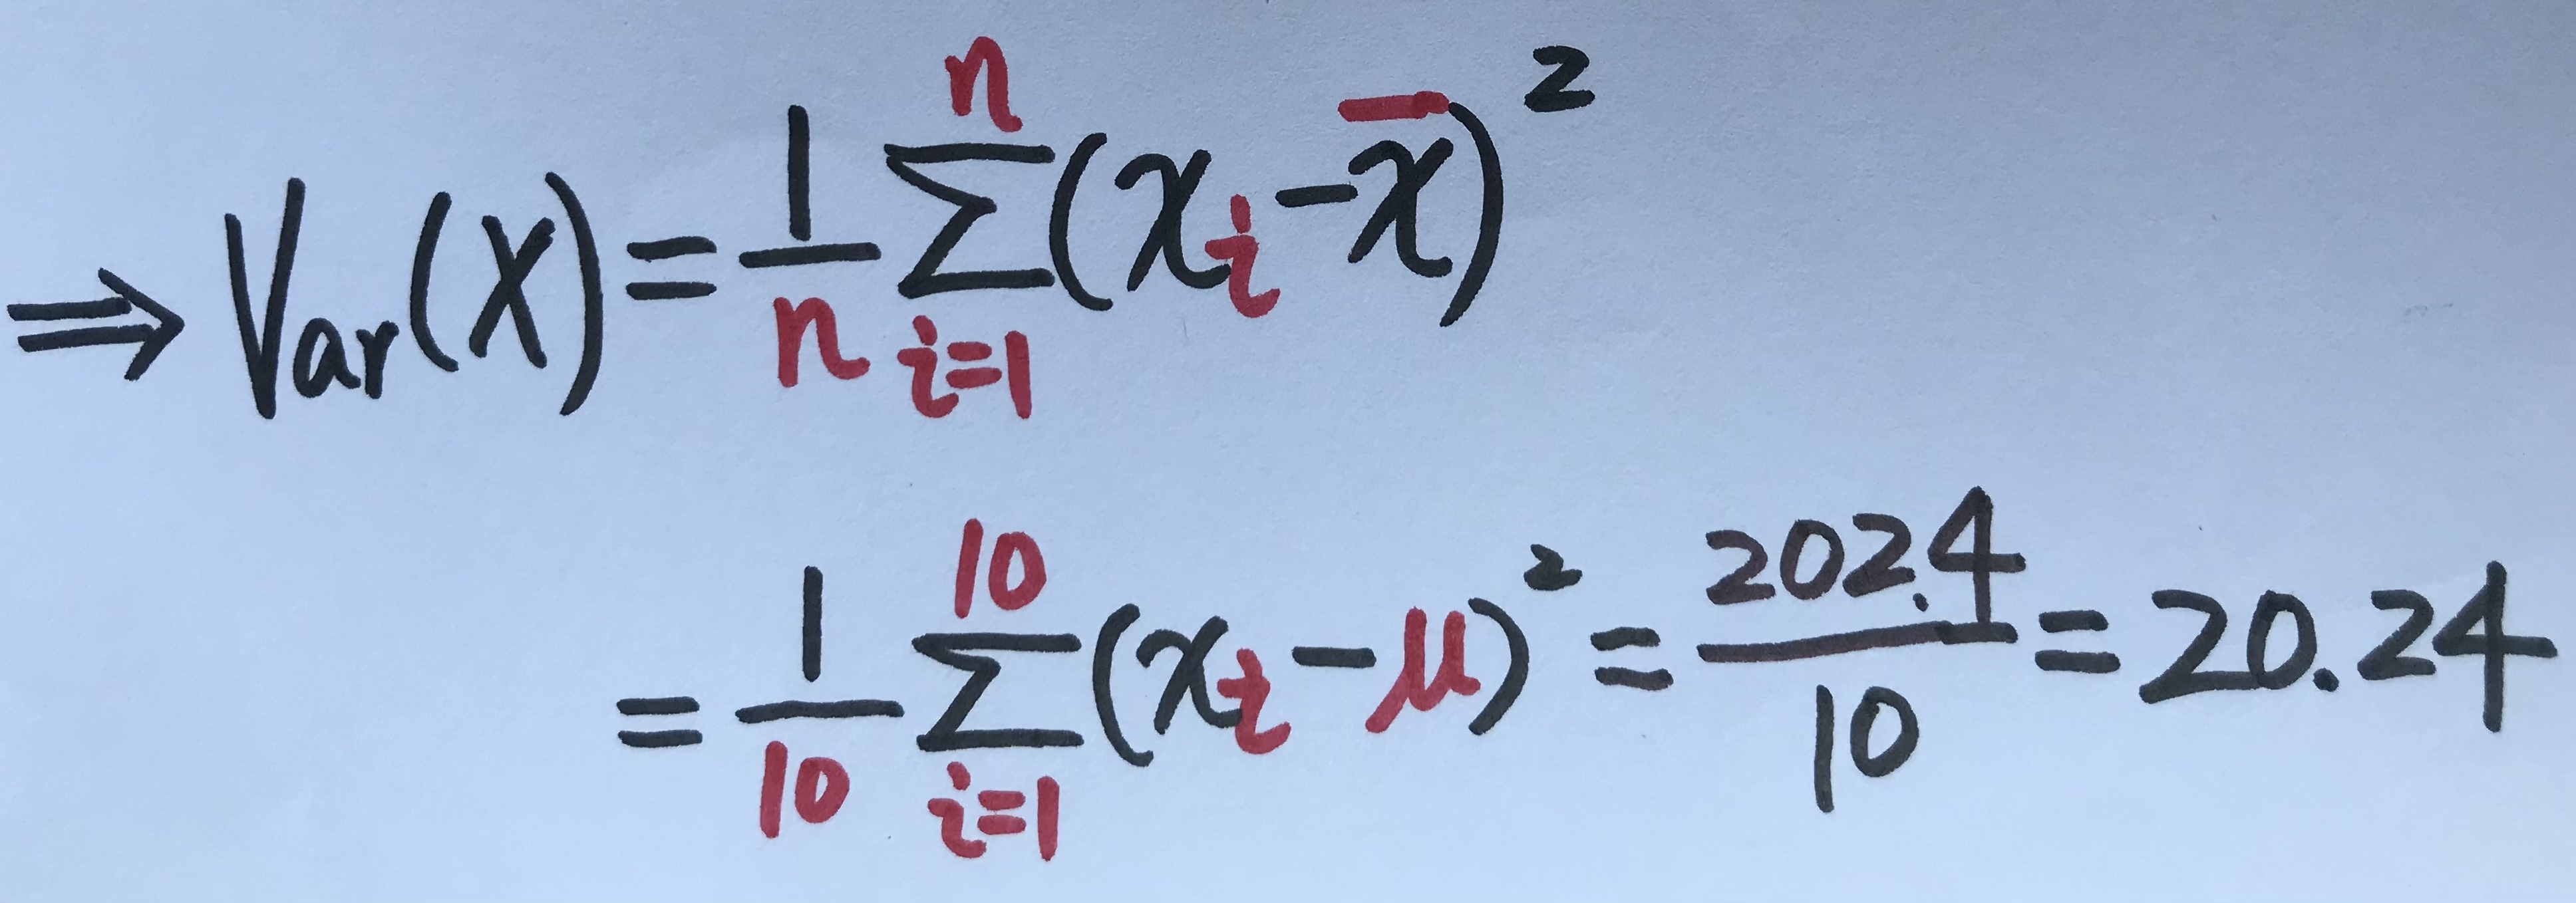 ⇒ Var(X) = 1/n Σ_{i=1}^{n} (x_i - x̄)²
= 1/10 Σ_{i=1}^{10} (x_i - μ)² = 202.4/10 = 20.24